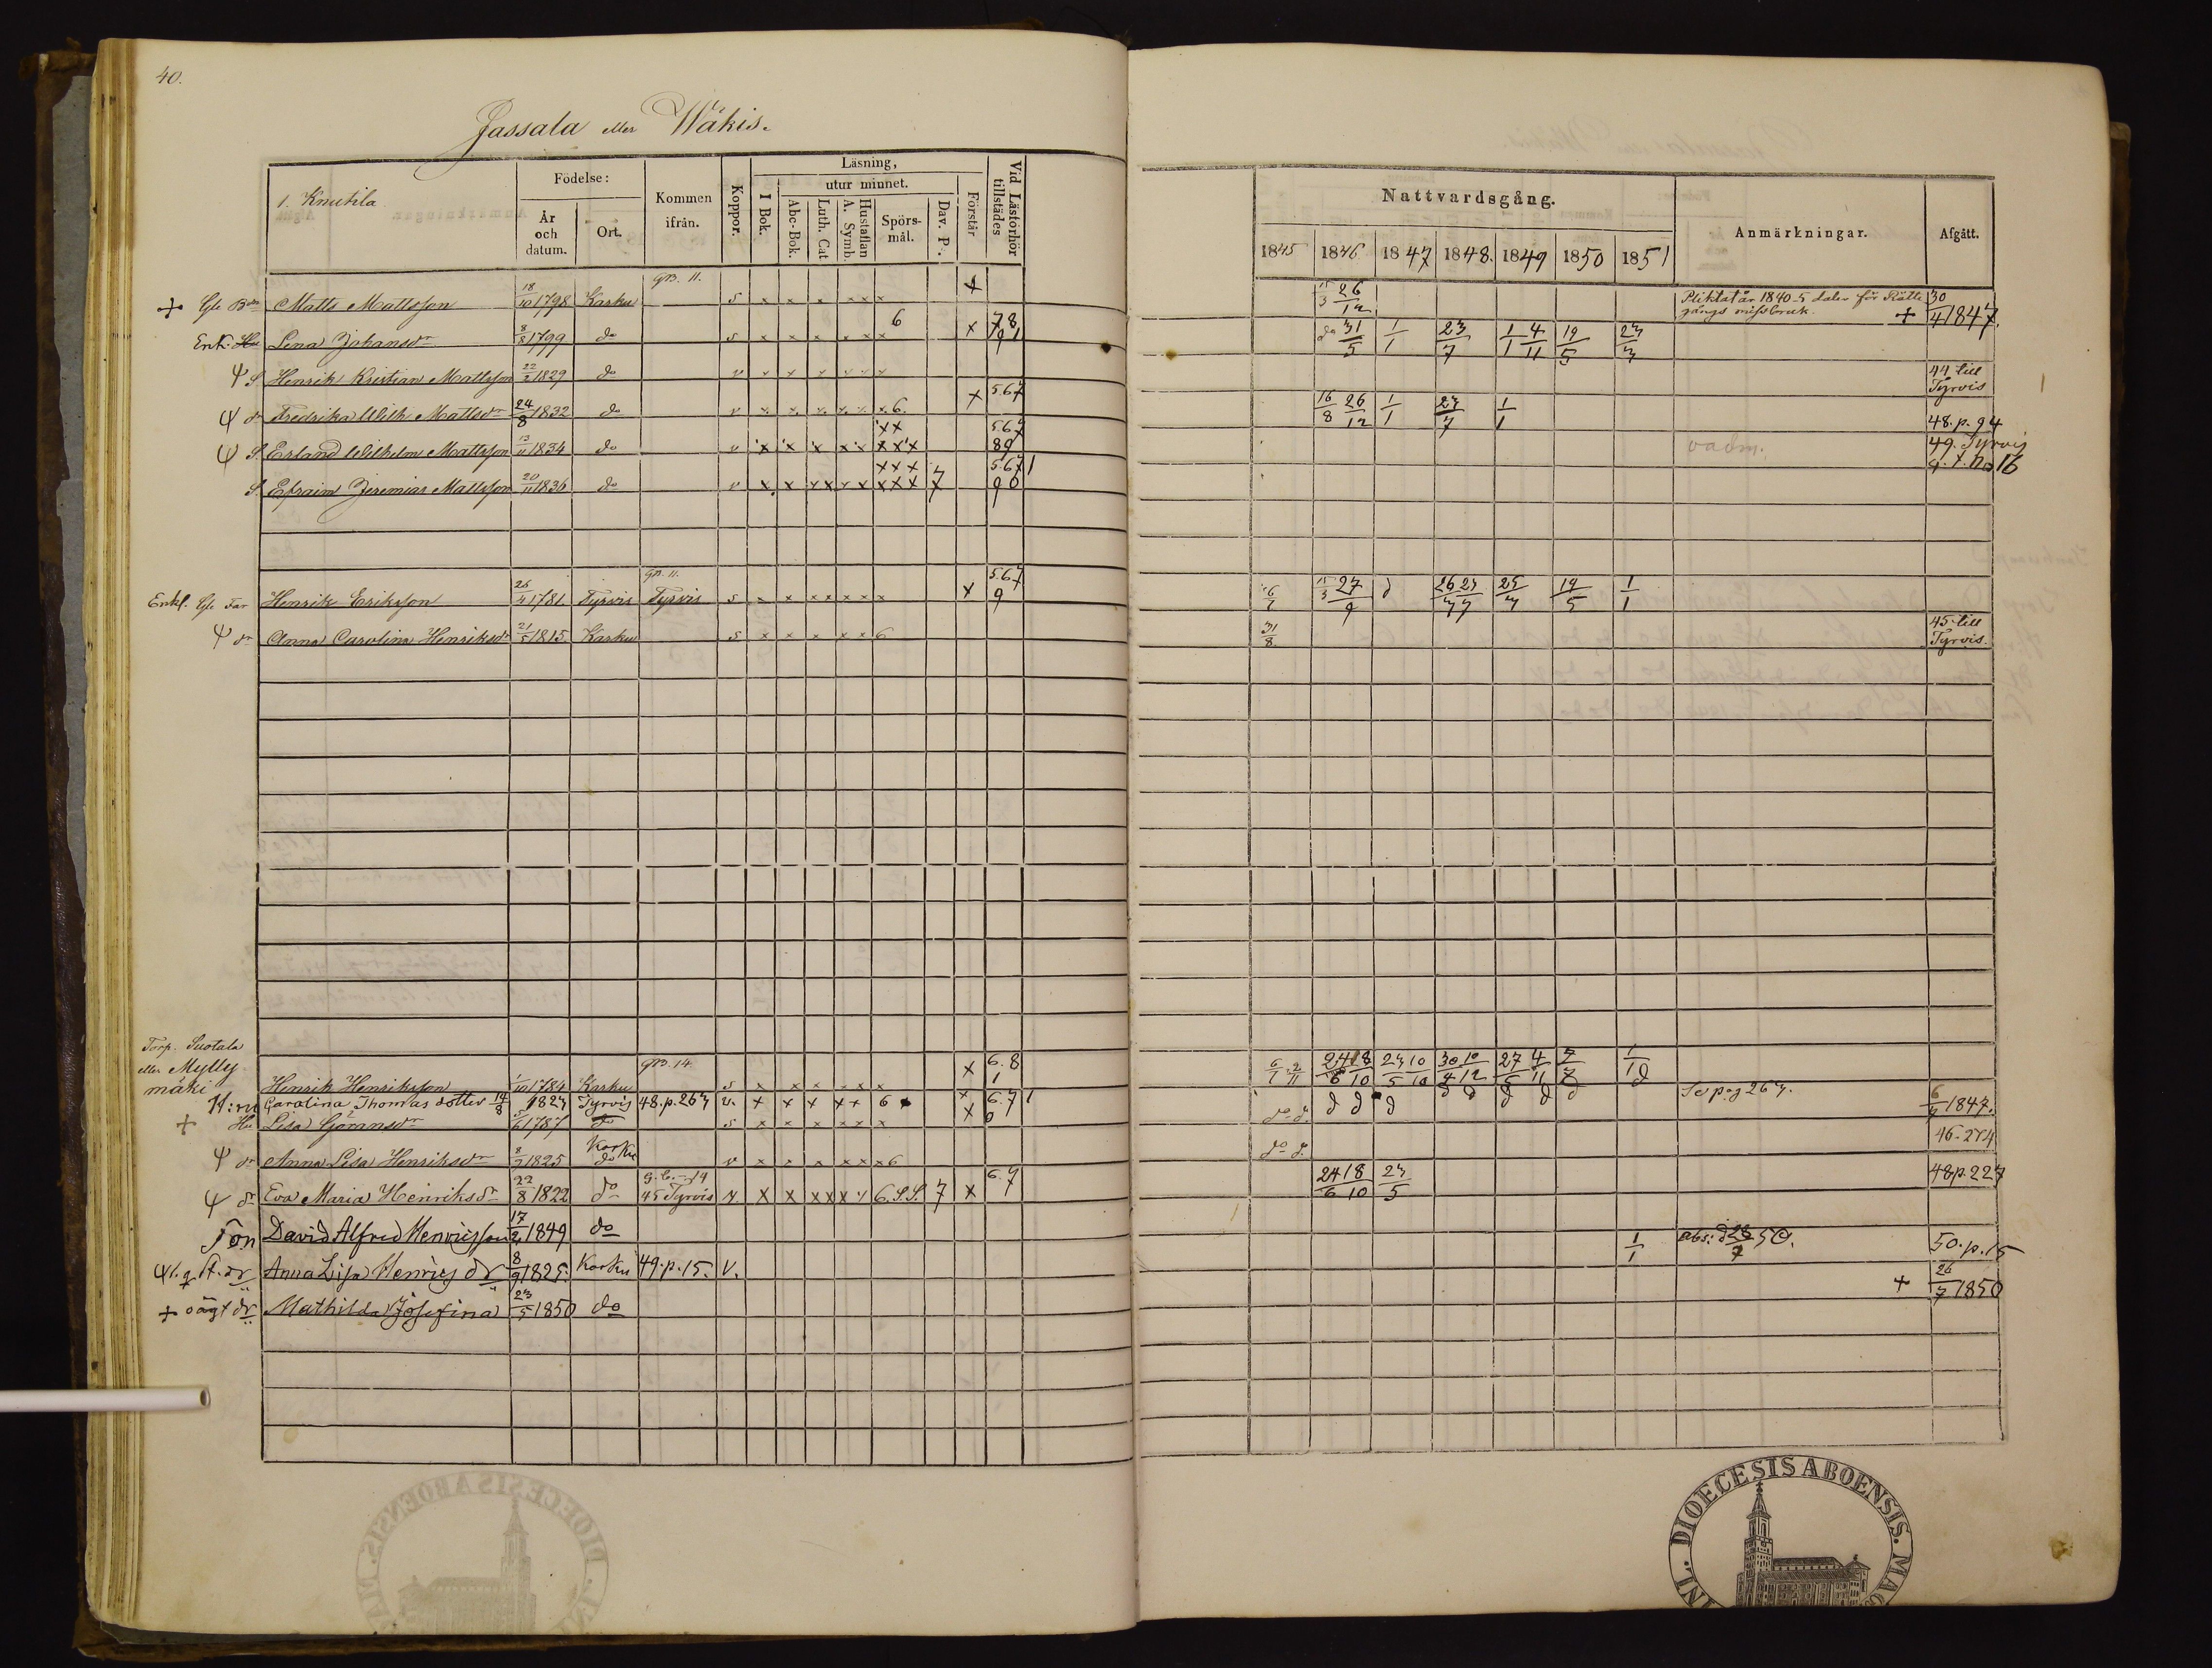 40.
Jassala eller Wäkis.
1. Knutila
Födelse:
År och datum.
Ort.
Kommen ifrån.
Koppor.
Läsning,
I Bok.
utur minnet.
Abc-Bok.
Luth. Cat
A. Symb.
Hustaflan
Spörs-mål.
Dav. P.
Förstår
Vid Läsförhör tillstädes
Nattvardsgång.
1845 1846 1847 1848. 1849 1850 1851
Anmärkningar.
Afgått.
GB. 11.
+ Matts Mattsson 18/10 1798 Karku s x x x x x x x 15/3 26/12 Pliktat år 1840 5 daler för Rätte 30/4 1847.
gångs missbruk. +
Enk. Hu Lena Johansdr 8/8 1799 do s x x x x x x 6 x 7 8 9 1 do 31/5 1/1 23/7 1/1 4/11 19/5 23/3
S. Henrik Kristian Mattsson 22/2 1829 do v 44 till Tyrvis
dr Fredrika Wilh. Mattsdr 24/8 1832 do v 6. x 5.6 7 16/8 26/12 1/1 23/7 1/1 48. p. 94
S. Erland Wilhelm Mattsson 13/11 1834 do v x x x x x x x x 5.6 7 8 9 49. Tyrvis
S. Efraim Jeremias Mattsson 20/11 1836 do v x x x x x x x x x 7 5.6 7 1 9 0 a. t. no 16
GB. 11.
Enkl. Far Henrik Eriksson 26/4 1781 Tyrvis Tyrvis s x x x x x x x x 5.6 7 9 15/3 27/9 d 19/5 1/1
dr Anna Carolina Henriksdr 21/5 1815 Karku s x x x x x 6 31/8. 45 till Tyrvis.
Torp. Suotala
eller Mylly
mäki
GB. 14
Henrik Henriksson 1/10 1784 Karku s x x x x x x x 6. 8 1 24/6 18/10 23/5 10/10 30/4 10/12 27/5 4/11 7/7 1/1 d
H:ru Carolina Thomas dotter 14/8 1827 Tyrvis 48. p. 267 v. x x x x x 6 x 6. 7 1 d d d d d d d d Se pag 267.
+ Hu Lisa Göransdr 5/6 1787 do s x x x x x x x 0 do d. 6/7 1847.
dr Anna Lisa Henriksdr 8/9 1825 Karku do v x x x x x x 6 do d. 46-274
dr Eva Maria Heinriksdr 22/8 1822 do 45 Tyrvis v. x x x x x 6. S.S. 7 x 6. 7 24/6 18/10 23/5 48 p. 227
son David Alfred Henricsson 17/2 1849 do
Anna Lisa Henrics dr 8/9 1825. Karku 49. p. 15. V. 1/1 abs: d 28/7 50. 50. p. 15
+ oägt dr Mathilda Josefina 23/5 1850 do + 26/7 1850
DIOECESIS ABOENSIS.